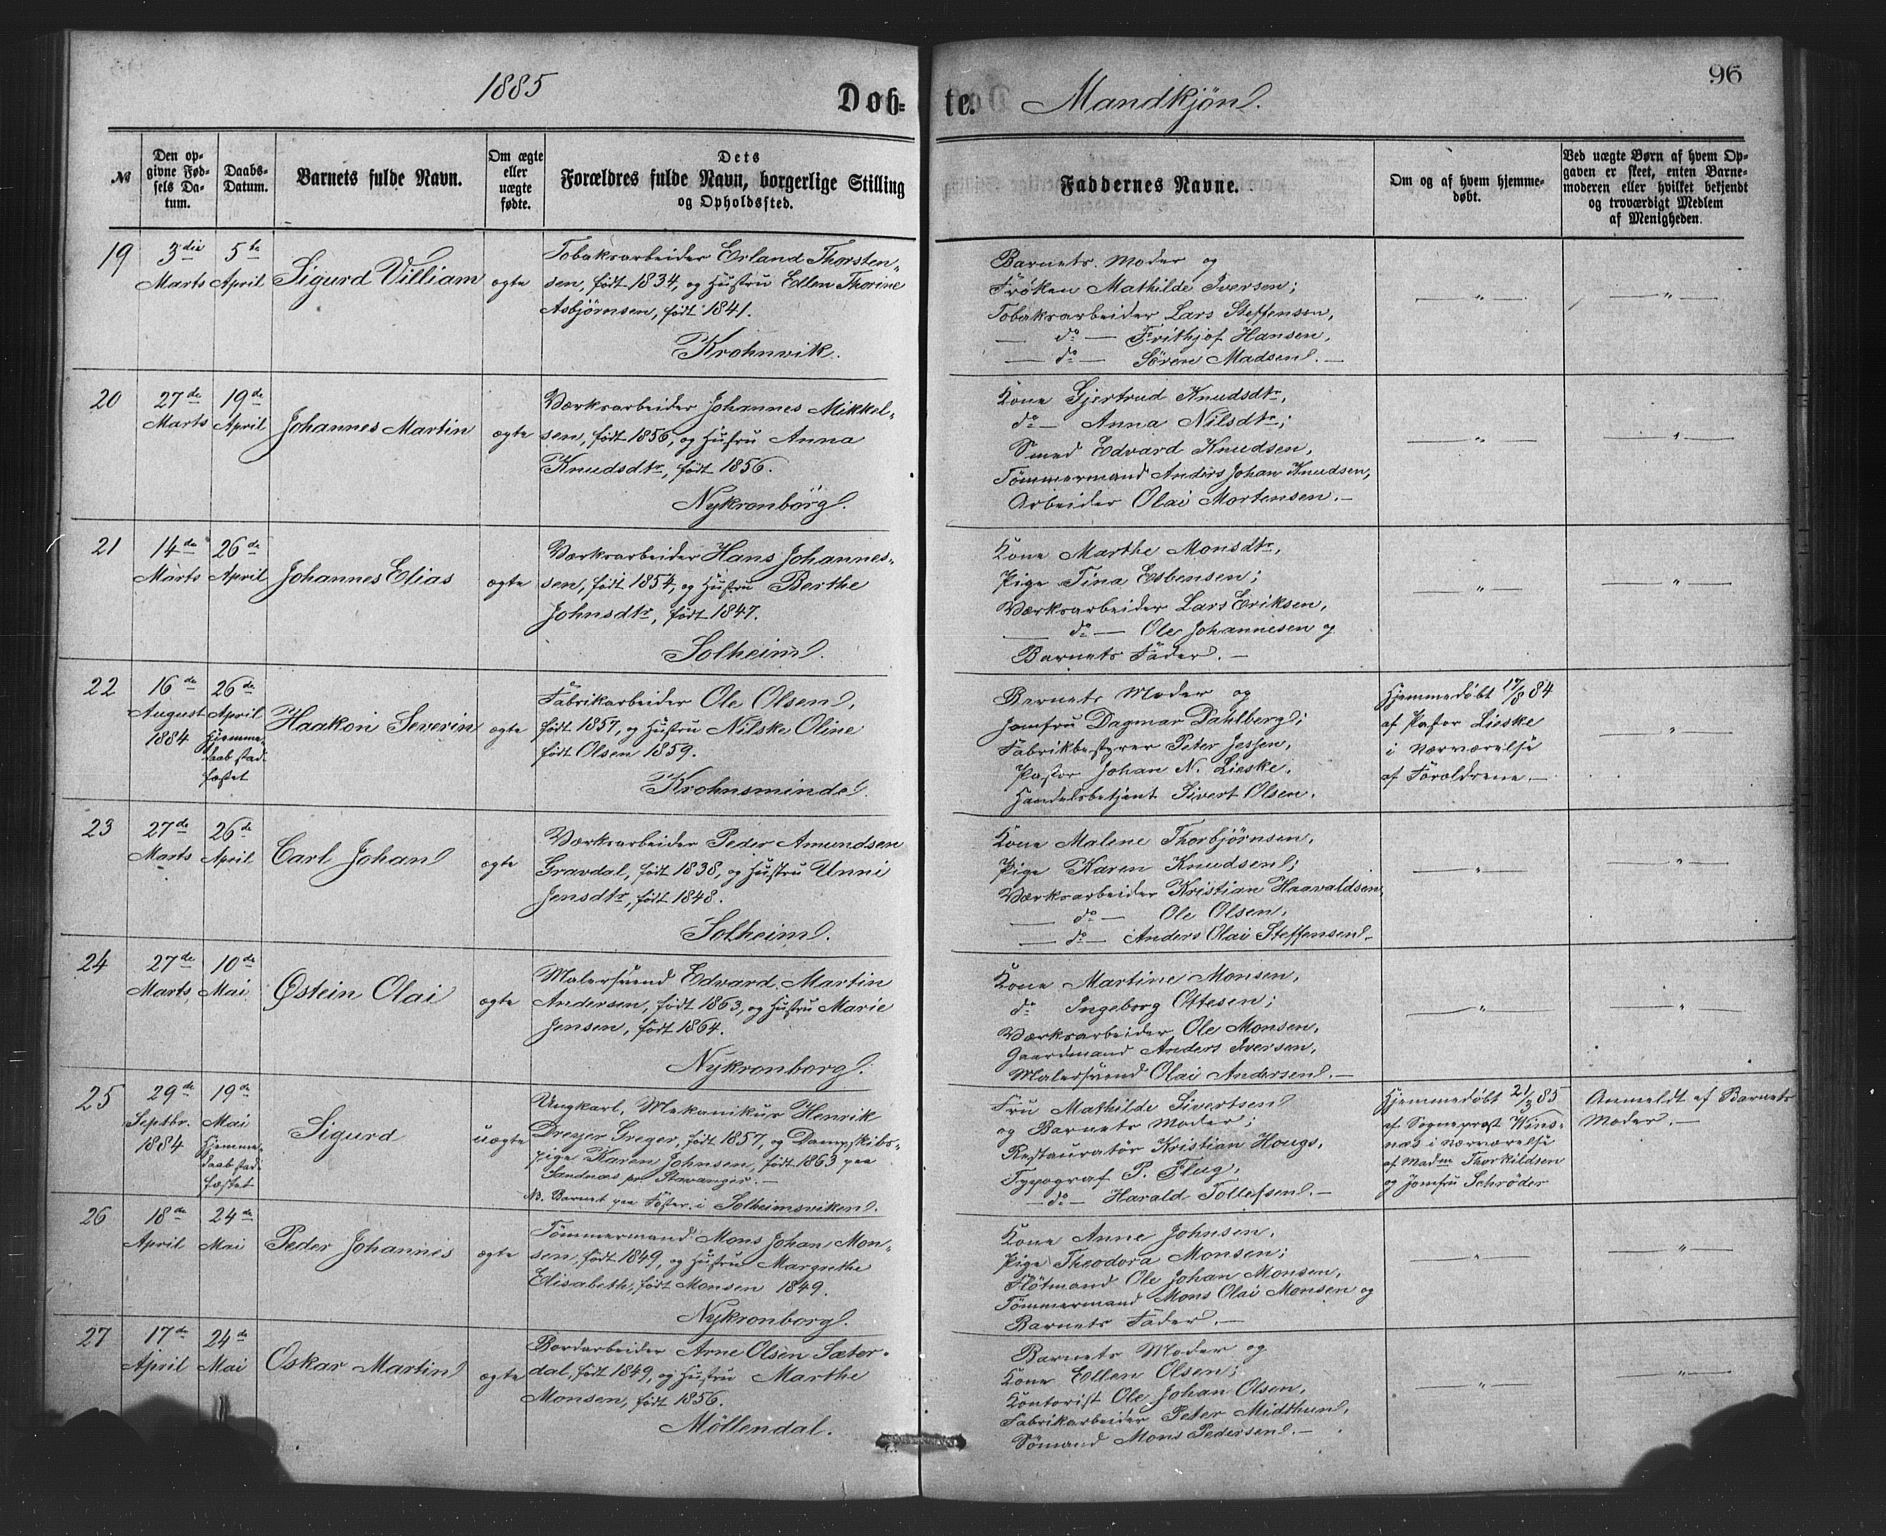 1885
Döb=
te.
Mandkjøn.
96
№
Den op-
givne Fød-
sels Da-
tum.
Daabs-
Datum.
Barnets fulde Navn.
Om ægte
eller
uægte
fødte.
Dets
Forældres fulde Navn, borgerlige Stilling
og Opholdssted.
Faddernes Navne.
Om og af hvem hjemme-
døbt.
Ved uægte Børn af hvem Op-
gaven er skeet, enten Barne-
moderen eller hvilket bekjendt
og troværdigt Medlem
af Menigheden.
19
3die
Marts
5te
April
Sigurd Villiam
ægte
Tobaksarbeider Erland Thorsten-
sen, født 1834, og Hustru Edlen Thorine
Asbjörnsen, født 1841.
Krohnvik.
Barnets Moder og
Frøken Mathilde Iversen;
Tobaksarbeider Lars Steffensen,
— do — Frithjof Hansen,
— do — Sören Madsen. —
— " —
— " —
20
27de
Marts
19de
April
Johannes Martin
ægte
Værksarbeider Johannes Mikkel-
sen, født 1856, og Hustru Anna
Knudsdtr, født 1856.
Nykronborg.
Kone Gjertrud Knudsdtr,
do — Anna Nilsdtr;
Smed Edvard Knudsen,
Tömmermand Anders Johan Knudsen,
Arbeider Olai Mortensen. —
— " —
— " —
21
14de
Marts
26de
April
Johannes Elias
ægte
Værksarbeider Hans Johannes-
sen, født 1854, og Hustru Berthe
Johnsdtr, født 1847.
Solheim.
Kone Marthe Monsdtr,
Pige Tina Esbensen;
Værksarbeider Lars Eriksen,
— do — Ole Johannesen og
Barnets Fader. —
— " —
— " —
22
16de
August
1884
26de
April
Hjemme-
daab stad-
fæstet
Haakon Severin
ægte
Fabrikarbeider Ole Olsen,
født 1857, og Hustru Nilske Oline
født Olsen 1859.
Krohnsminde.
Barnets Moder og
Jomfru Dagmar Dahlberg;
Fabrikbestyrer Peter Jessen,
Pastor Johan N. Lieske,
Handelsbetjent Sivert Olsen.
Hjemmedøbt 17/8 84
af Pastor Lieske
i Nærværelse
af Forældrene. —
— " —
23
27de
Marts
26de
April
Carl Johan
ægte
Værksarbeider Peder Amundsen
Gravdal, født 1838, og Hustru Unni
Jensdtr, født 1848.
Solheim.
Kone Malene Thorbjørnsen,
Pige Karen Knudsen;
Værksarbeider Kristian Haavaldsen,
— do — Ole Olsen,
— do — Anders Olai Steffensen. —
— " —
— " —
24
27de
Marts
10de
Mai
Østein Olai
ægte
Malersvend Edvard Martin
Andersen, født 1863, og Hustru Marie
Jensen, født 1864.
Nykronborg.
Kone Martine Monsen,
do Ingeborg Ottesen;
Værksarbeider Ole Monsen,
Gaardmand Anders Iversen,
Malersvend Olai Andersen. —
— " —
— " —
25
29de
Septbr.
1884
19de
Mai
Hjemme-
daab stad-
fæstet
Sigurd
uægte
Ungkarl, Mekanikus Henrik
Dreyer Greger, født 1857, og Dampskibs-
pige Karen Johnsen, født 1863 paa
Sandnæs pr Stavanger. —
NB. Barnet paa Foster i Solheimsviken.
Fru Mathilde Sivertsen
og Barnets Moder;
Restauratør Kristian Hougs,
Typograf P. Flug,
— do — Harald Tollefsen. —
Hjemmedøbt 21/3 85
af Sogneprest Wins-
næs i Nærværelse
af Madm Thorkildsen
og Jomfru Schrøder
Anmeldt af Barnets
Moder. —
26
18de
April
24de
Mai
Peder Johannes
ægte
Tömmermand Mons Johan Mon-
sen, født 1849, og Hustru Margrethe
Elisabeth, født Monsen 1849.
Nykronborg.
Kone Anne Johnsen,
Pige Theodora Monsen;
Flötmand Ole Johan Monsen,
Tömmermand Mons Olai Monsen og
Barnets Fader. —
"
— " —
27
17de
April
24de
Mai
Oskar Martin
ægte
Bordarbeider Arne Olsen Sæter-
dal, født 1849, og Hustru Marthe
Monsen, født 1856.
Möllendal.
Barnets Moder og
Kone Ellen Olsen;
Kontorist Ole Johan Olsen,
Fabrikarbeider Peter Midthun,
Sömand Mons Pedersen. —
— " —
— " —